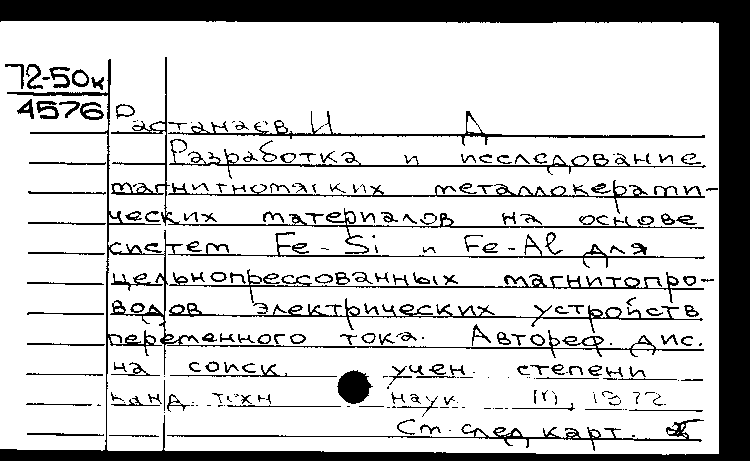 72-50к
4576
Растанаев, И Д
Разработка и исследование
магнитномягких металлокерами-
ческих материалов на основе
систем Fe-Si и Fe-Al для
цельнопрессованных магнитопро-
водов электрических устройств
переменного тока. Автореф. дис.
на соиск. учен. степени
канд. техн наук. М, 1972
См. след. карт.